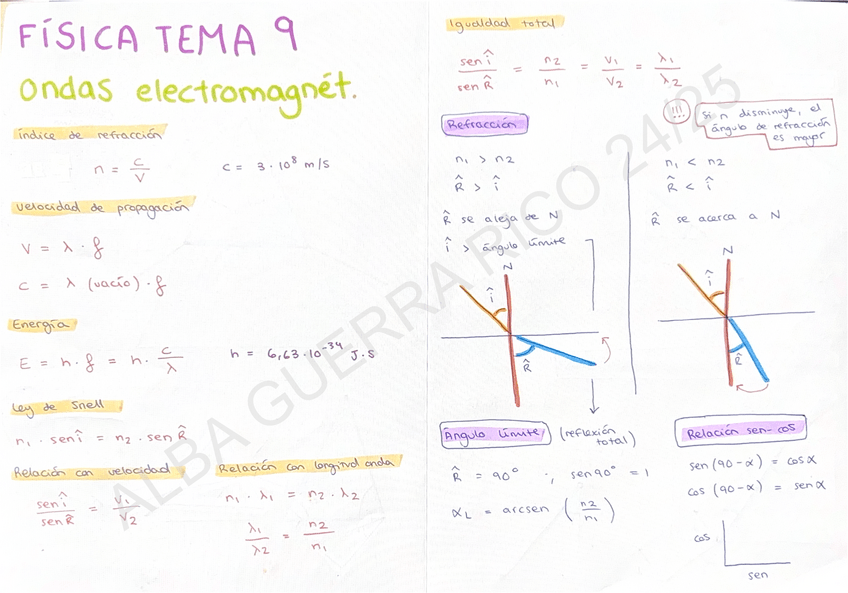 FÍSICA TEMA 9
Ondas electromagnét.
Índice de refracción
n = c/v    c = 3·10⁸ m/s
Velocidad de propagación
V = λ · f
c = λ (vacío) · f
Energía
E = h·f = h· c/λ    h = 6,63·10⁻³⁴ J·s
Ley de Snell
n₁ · sen î = n₂ · sen R̂
Relación con velocidad
sen î / sen R̂ = V₁ / V₂
Relación con longitud onda
n₁ · λ₁ = n₂ · λ₂
λ₁ / λ₂ = n₂ / n₁
Igualdad total
sen î / sen R̂ = n₂ / n₁ = V₁ / V₂ = λ₁ / λ₂
!!!
Si n disminuye, el
ángulo de refracción
es mayor
Refracción
n₁ > n₂
R̂ > î
R̂ se aleja de N
î > ángulo límite
N
î
R̂
n₁ < n₂
R̂ < î
R̂ se acerca a N
N
î
R̂
Ángulo límite (reflexión
total)
R̂ = 90° ; sen 90° = 1
αL = arcsen (n₂/n₁)
Relación sen-cos
sen (90-α) = cos α
cos (90-α) = sen α
cos
sen
ALBA GUERRA RICO 24/25